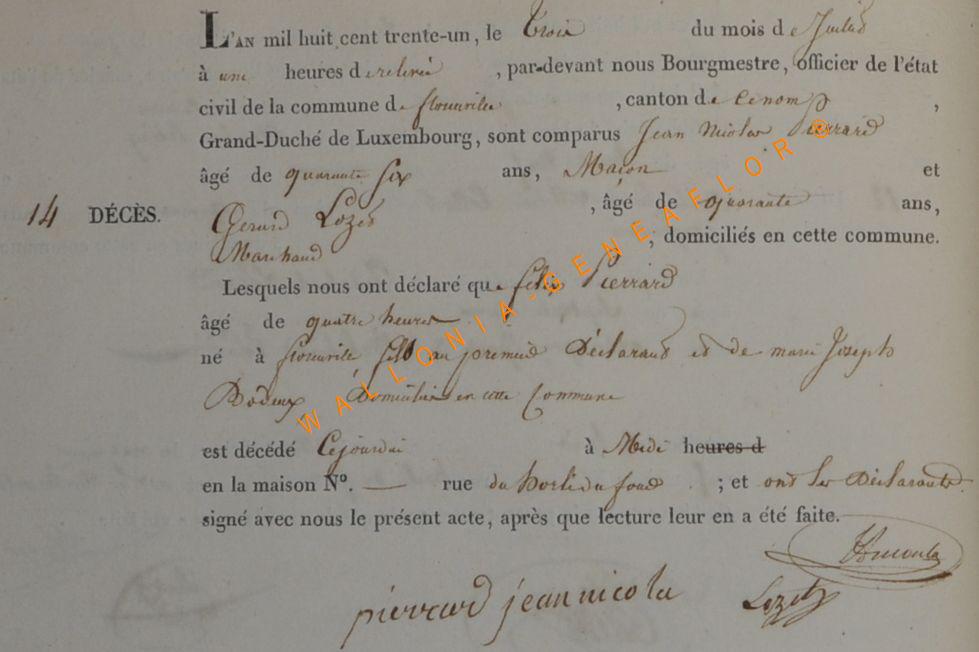 L'AN mil huit cent trente-un, le Trois du mois de Juillet
à une heures de relevée, par-devant nous Bourgmestre, officier de l'état
civil de la commune de flonville, canton de
Grand-Duché de Luxembourg, sont comparus Jean Nicolas Pierrard
âgé de quarante six ans, Maçon et
14 DÉCÈS. Gerard Lozet, âgé de quarante ans,
Marchand, domiciliés en cette commune.
Lesquels nous ont déclaré que Pierrard
âgé de quatre heures
né à au premier Déclarant et de marie Joseph
Bodeux Domiciliés en cette Commune
est décédé Cejourdui à Midi heures d
en la maison N°. — rue du fond ; et ont les Déclarants
signé avec nous le présent acte, après que lecture leur en a été faite.
pierrard jean nicola Lozet
WALLONIA-GENEAFLOR©